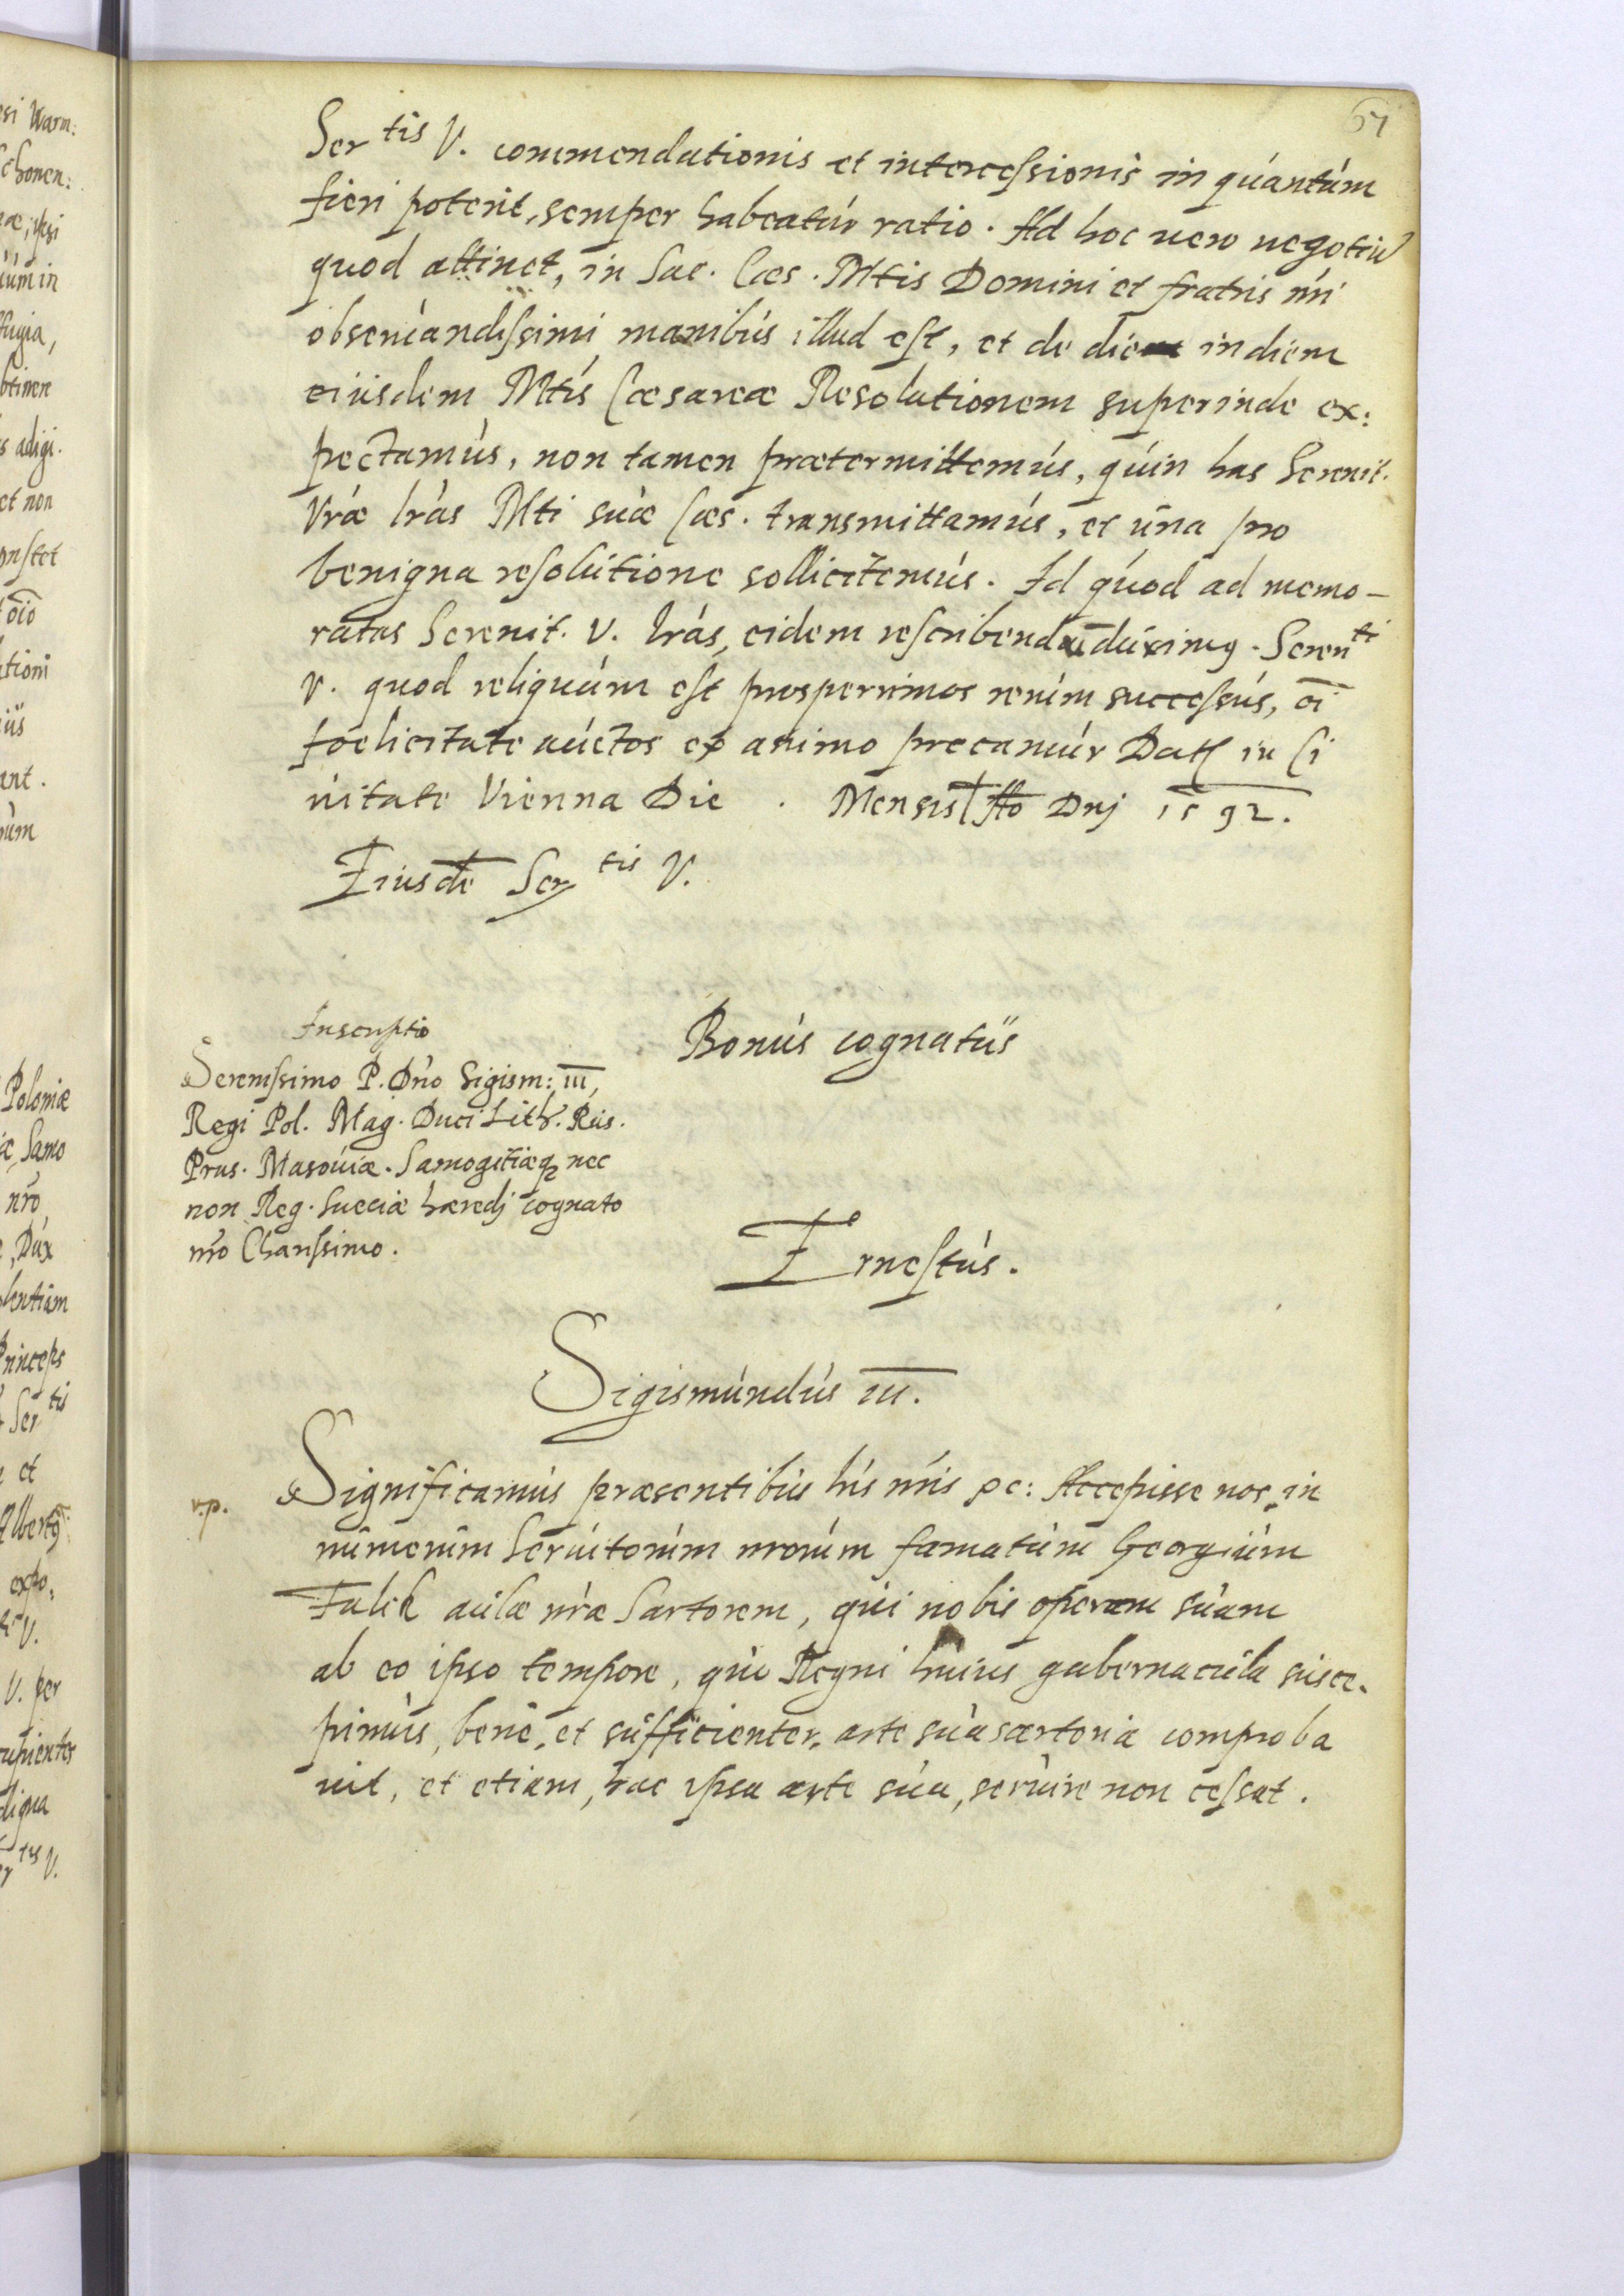 Ser tis V. commendationis et intercessionis in quantum
fieri poterit, semper habeatur ratio. Ad hoc uero negotiũ
quod attinet, in Sac. Caes. Mtis Domini et fratris nri
obseruandissimi manibus illud est, et de die in diem
eiusdem Mtis Cæsareæ Resolutionem superinde ex:
pectamus, non tamen prætermittemus, quin has Serenit.
Vræ lras Mti suæ Cæs. transmittamus, et una pro
benigna resolutione sollicitemus. Id quod ad memo-
ratas Serenit. V. lras, eidem rescribendũ duximg. Seren ti
V. quod reliquum est prosperrimos rerum successus, oi
foelicitate auctos ex animo precamur Dat in Ci
uitate Vienna Die . Mensis Ao Dnj 1592.
Eiusdẽ Ser tis V.
Bonus cognatus
Inscriptio
Serenissimo P. Dno Sigism: III,
Regi Pol. Mag. Duci Lith. Rus.
Prus. Masouiæ. Samogitiæq nec
non Reg. Sueciæ hæredj cognato
nro Charissimo.
Ernestus.
Sigismundus III.
v.p.
Significamus præsentibus his nris &c: Accepisse nos, in
numerum Seruitorum nrorum famatum Georgium
Falck aulæ nræ Sartorem, qui nobis operam suam
ab eo ipso tempore, quo Regni huius gubernacula susce-
pimus, bene, et sufficienter, arte sua sartoria comproba
uit, et etiam, hac ipsa arte sua, seruire non cessat.